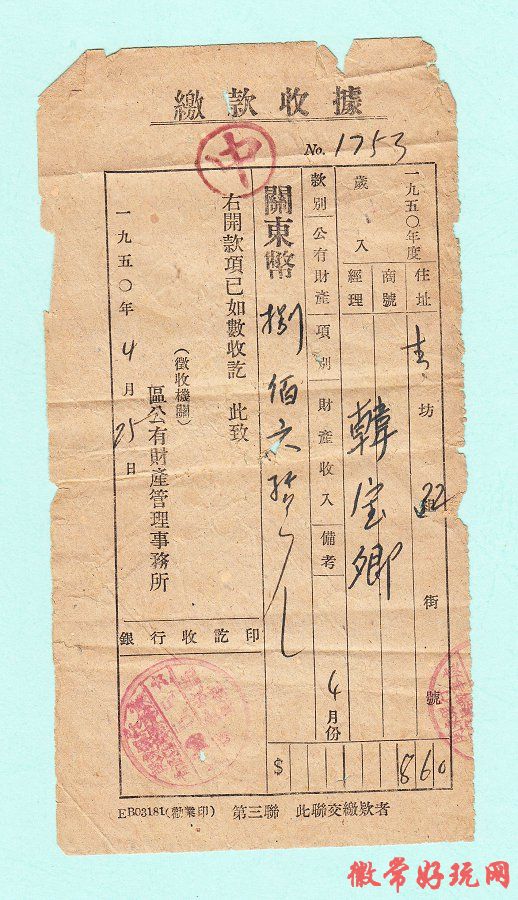 繳款收據
No. 1753
中
一九五〇年度
住址 坊 22 街 號
歲入
商號
經理 韓宝卿
款別 公有財產 項別 財產收入 備考 4月份
關東幣 捌佰六拾
$ 860
右開款項已如數收訖 此致
(徵收機關)
區公有財產管理事務所
一九五〇年4月25日
銀行收訖印
EB03181(勸業印) 第三聯 此聯交繳欵者
徽常好玩网